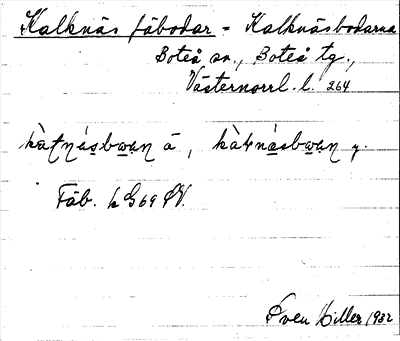 Kalknäs fäbodar = Kalknäsbodarna
Boteå sn., Boteå tg.,
Västernorrl. l. 264
ä, y.
Fäb. k G69 SV.
Sven Hiller 1932